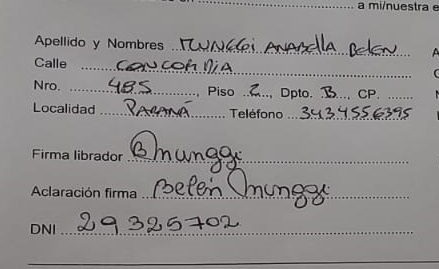 a mi/nuestra
Apellido y Nombres ANABELLA BELEN
Calle CONCORDIA
Nro. 485 Piso 2 Dpto. B CP.
Localidad PARANÁ Teléfono 3434556395
Firma librador
Aclaración firma Belén Munggi
DNI 29325702